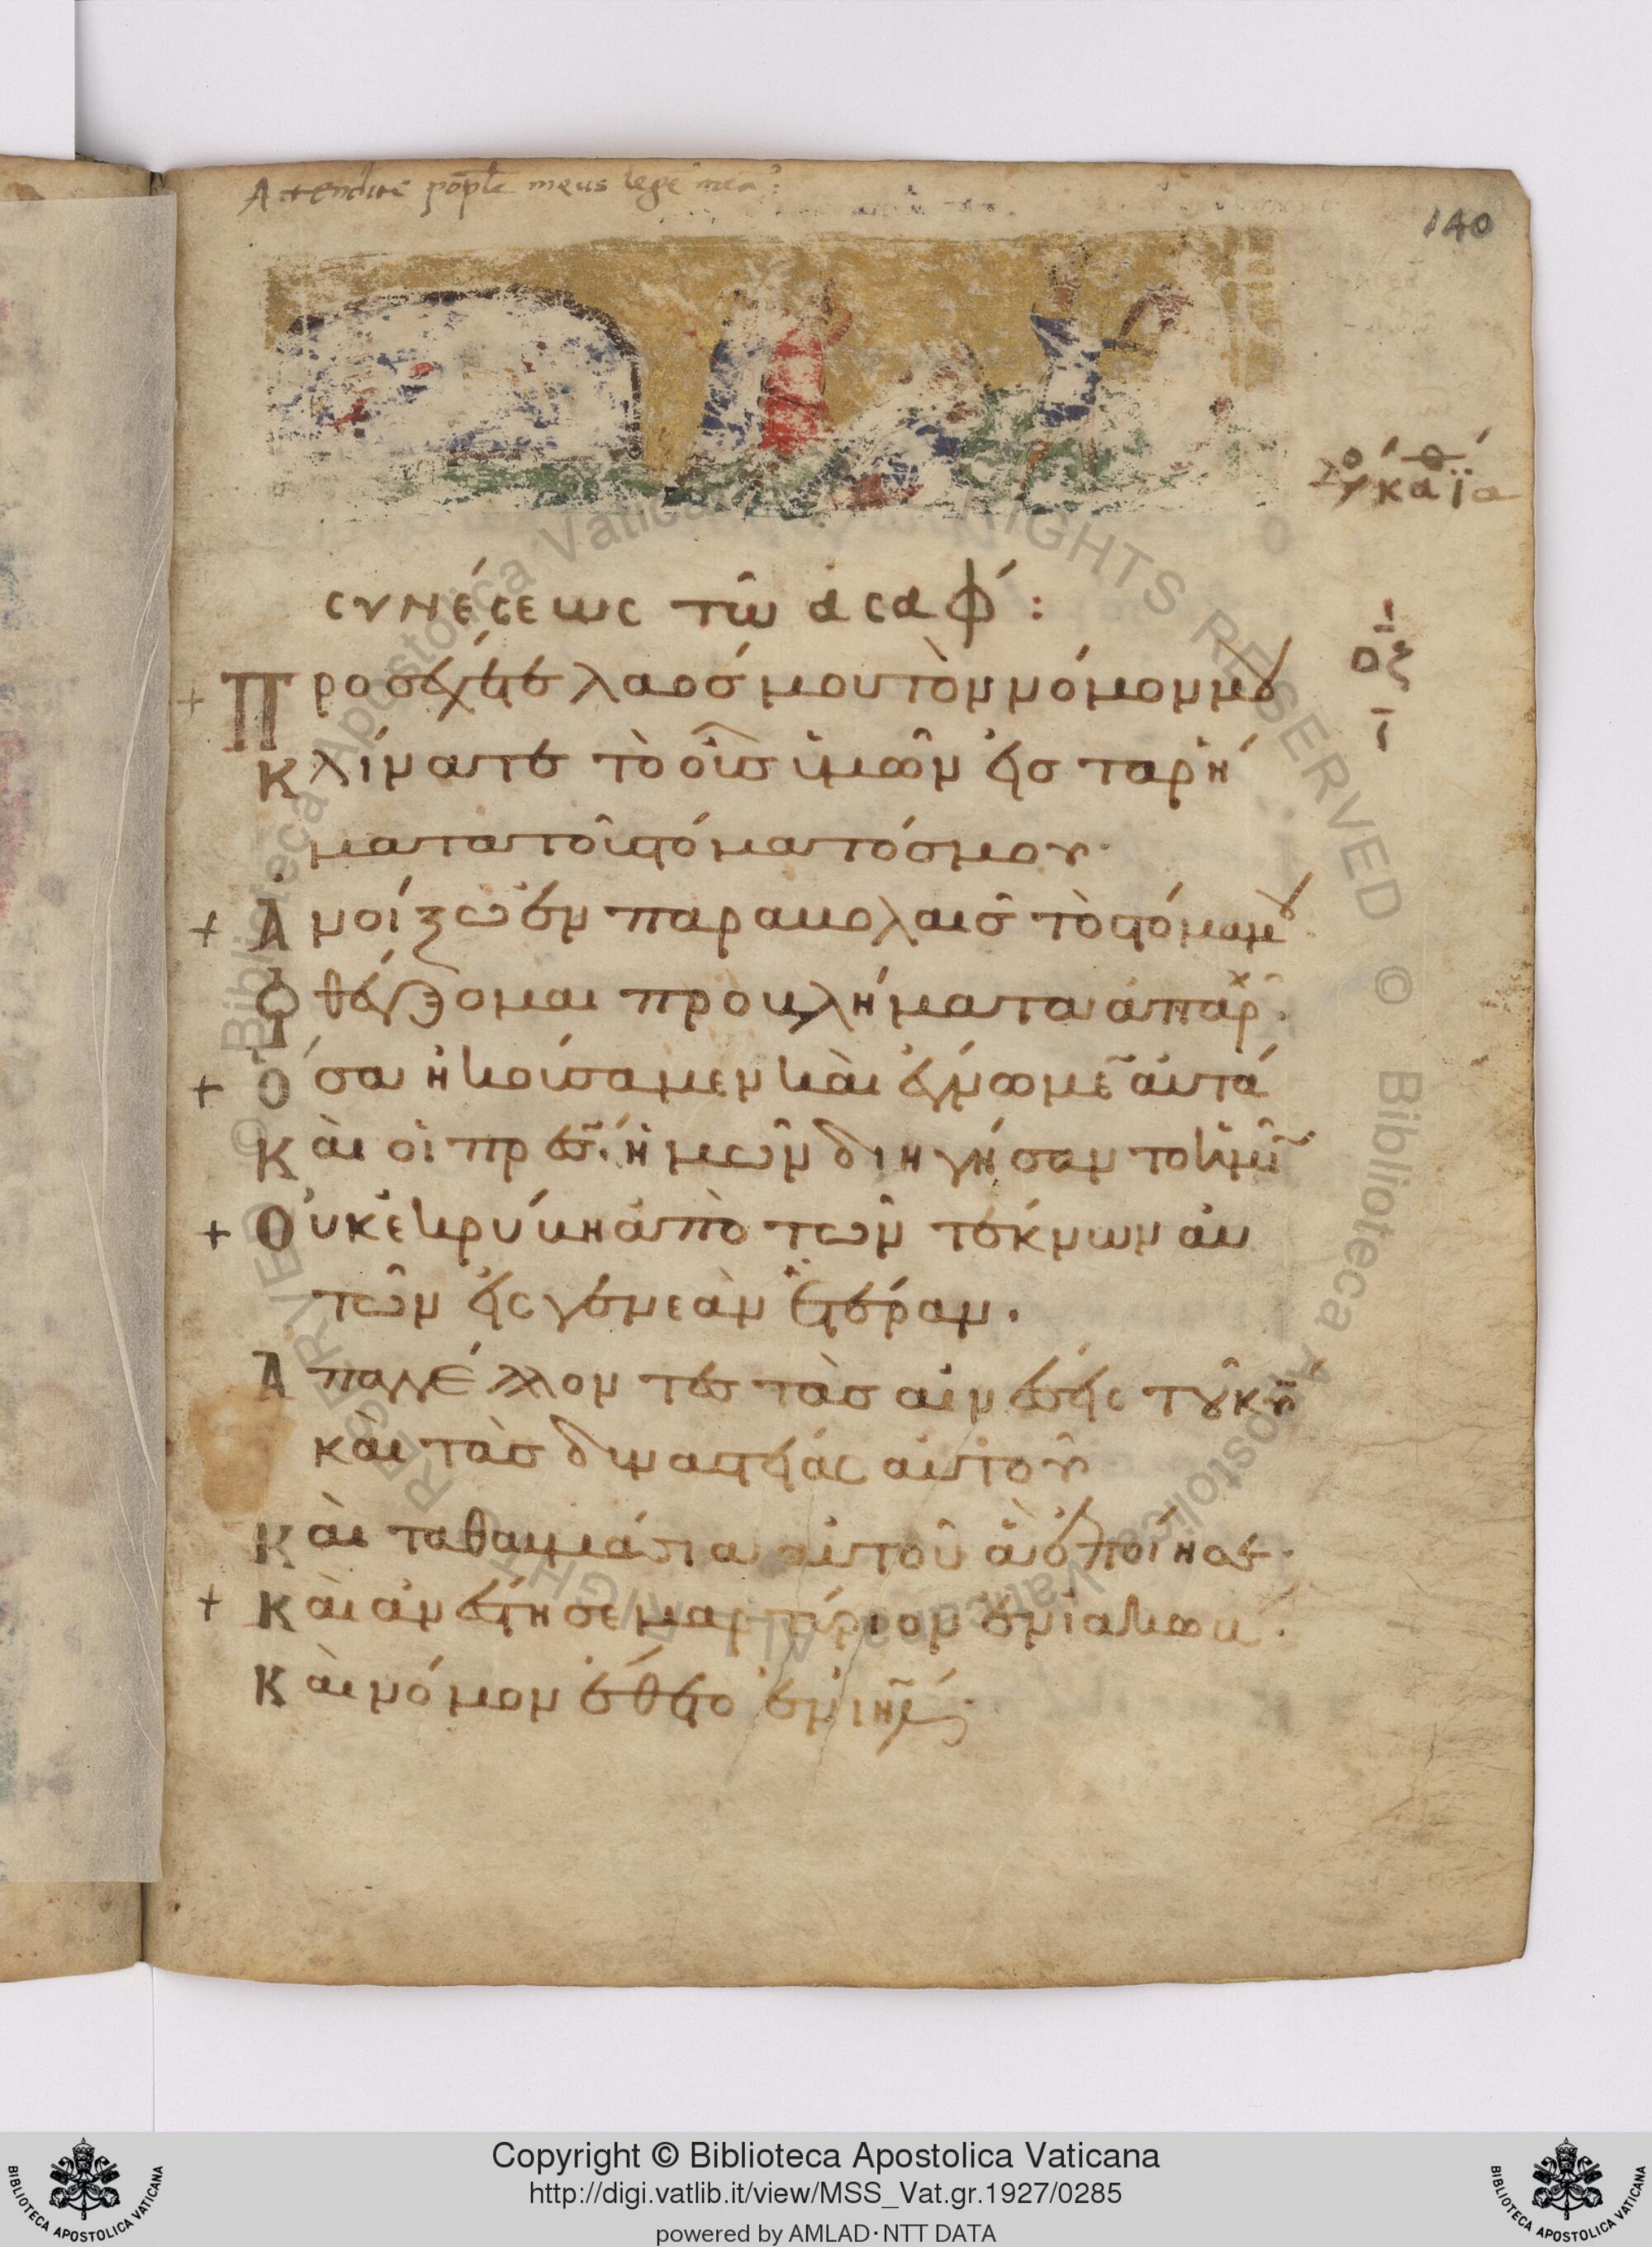 Attendite pople meus lege mea:
140
συνέσεως τῶ ασαφ́:
Προσέχετε λαόσ μου τὸν νόμον μου
Κλίνατε τὸ οὖσ ὑμῶν εἰσ τα ρή
ματα τοῦ στόματόσ μου·
Ανοίξω ἐν παραβολαῖσ τὸ στόμα μου
Φθέγξομαι προβλήματα ἀπαρχ·
Ὅσα ἠκούσαμεν καὶ ἔγνωμε̄ αὐτά
Καὶ οἱ πρ̅ε̅σ ἡμῶν διηγήσαντο ἡμῖ̄
Οὐκ ἐκρύβη ἀπὸ τῶν τέκνων αὐ
τῶν εἰς γενεὰν ἑτέραν.
Απαγγέλλοντες τὰσ αἰνέσεις τοῦ κ̅υ̅
καὶ τὰσ δυναστείας αὐτοῦ
Καὶ τα θαυμάσια αὐτοῦ ἃ ἐποίησε·
Καὶ ἀνέστησε μαρτύριον ἐν ἰακώβ·
Καὶ νόμον ἔθετο ἐν ι̅η̅λ
οζ
ϊ
Copyright © Biblioteca Apostolica Vaticana
http://digi.vatlib.it/view/MSS_Vat.gr.1927/0285
powered by AMLAD·NTT DATA
BIBLIOTECA APOSTOLICA VATICANA
BIBLIOTECA APOSTOLICA VATICANA